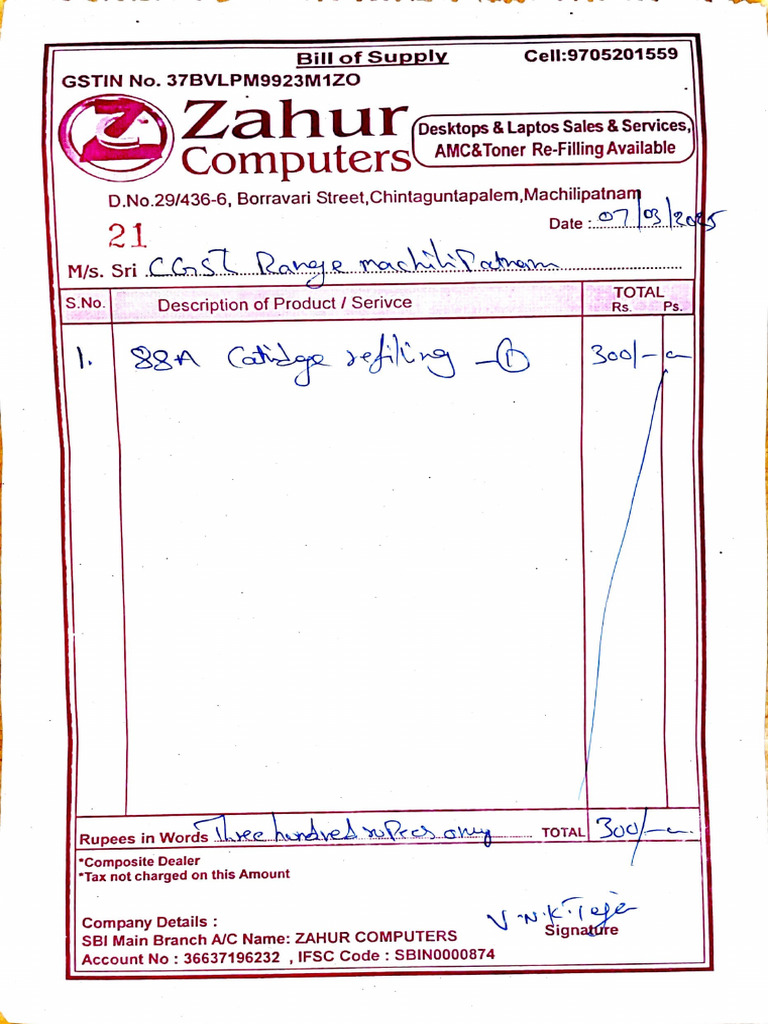 Bill of Supply
Cell:9705201559
GSTIN No. 37BVLPM9923M1ZO
Zahur
Computers
Desktops & Laptos Sales & Services,
AMC&Toner Re-Filling Available
D.No.29/436-6, Borravari Street,Chintaguntapalem,Machilipatnam
Date : 07/03/2025
21
M/s. Sri CGST Range machiliPatnam
S.No. Description of Product / Serivce TOTAL
Rs. Ps.
1. 88A Catidge refiling - 1 300/-
Rupees in Words Three hundred rupees only TOTAL 300/-
*Composite Dealer
*Tax not charged on this Amount
V.N.K.Teja
Signature
Company Details :
SBI Main Branch A/C Name: ZAHUR COMPUTERS
Account No : 36637196232 , IFSC Code : SBIN0000874